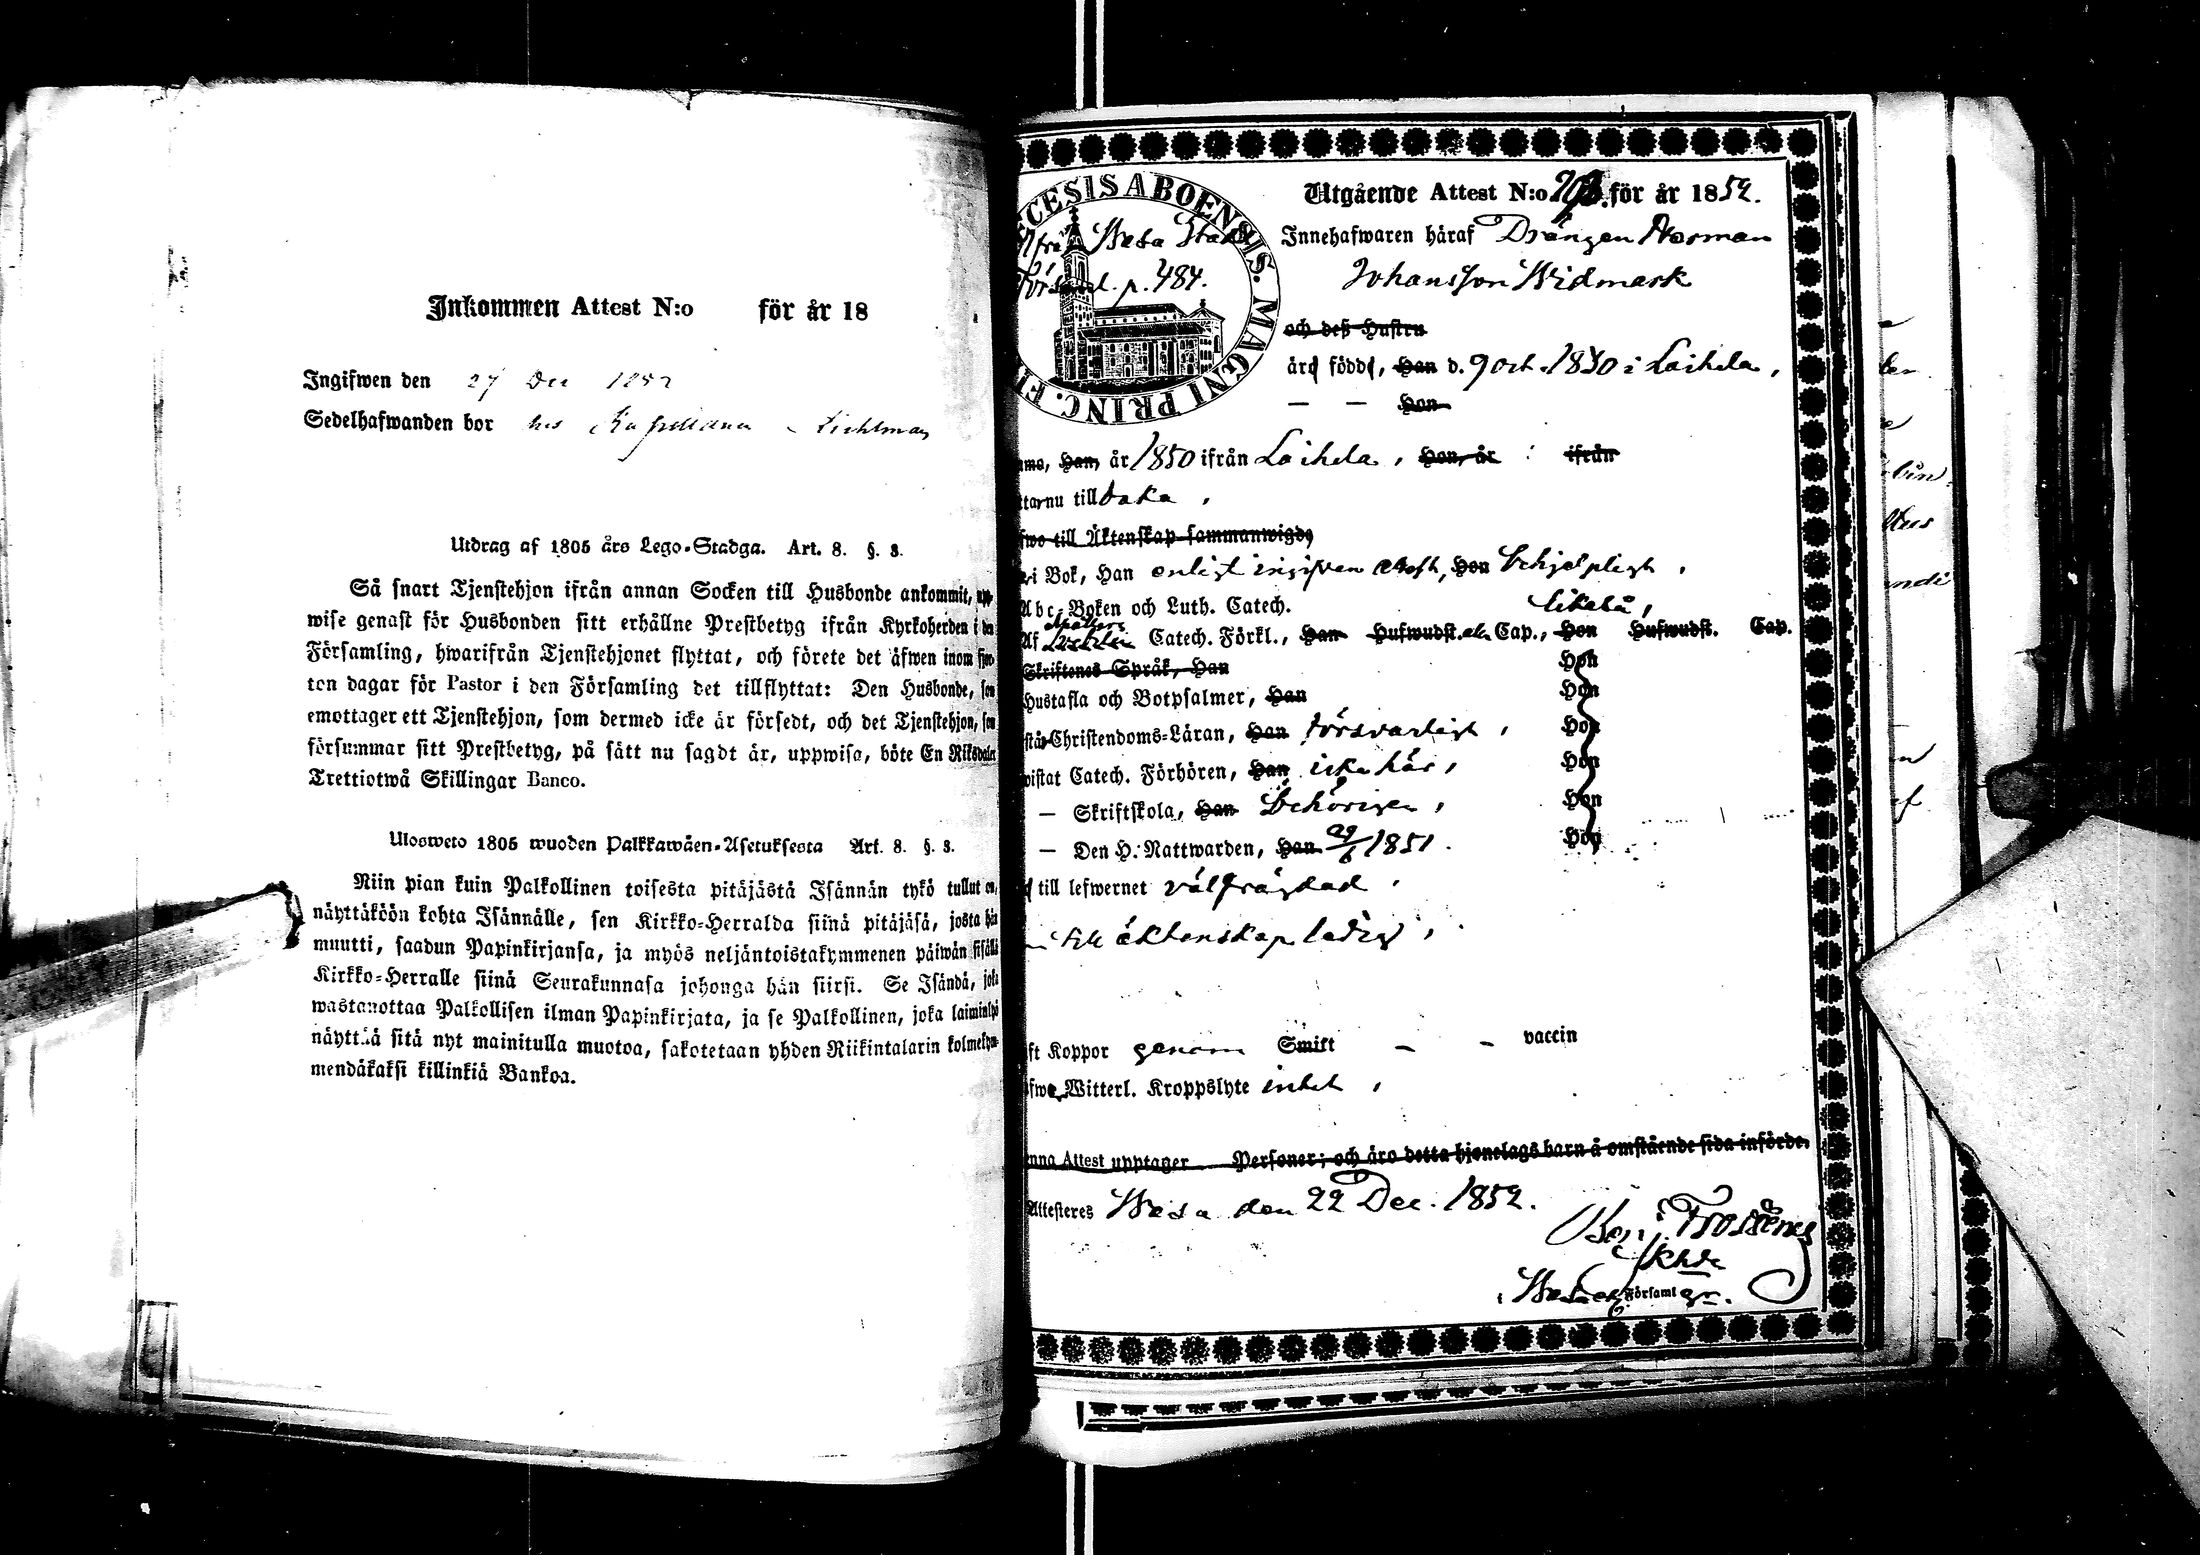 Inkommen Attest N:o för år 18
Ingifwen den 27 Dec 1852
Sedelhafwanden bor hos
Utdrag af 1805 års Lego-Stadga. Art. 8. §. 3.
Så snart Tjenstehjon ifrån annan Socken till Husbonde ankommit, upp-
wise genast för Husbonden sitt erhållne Prestbetyg ifrån Kyrkoherden i den
Församling, hwarifrån Tjenstehjonet flyttat, och förete det äfwen inom fjor-
ton dagar för Pastor i den Församling det tillflyttat: Den Husbonde, som
emottager ett Tjenstehjon, som dermed icke är försedt, och det Tjenstehjon, som
försummar sitt Prestbetyg, på sätt nu sagdt är, uppwisa, böte En Riksdaler
Trettiotwå Skillingar Banco.
Ulosweto 1805 wuoden Palkkawäen-Asetuksesta Art. 8. §. 3.
Niin pian kuin Palkollinen toisesta pitäjästä Isännän tykö tullut on,
näyttäköön kohta Isännälle, sen Kirkko-Herralda siinä pitäjäsä, josta hän
muutti, saadun Papinkirjansa, ja myös neljäntoistakymmenen päiwän sisällä
Kirkko-Herralle siinä Seurakunnasa johonga hän siirsi. Se Isändä, joka
wastanottaa Palkollisen ilman Papinkirjata, ja se Palkollinen, joka laiminlyö
näyttää sitä nyt mainitulla muotoa, sakotetaan yhden Riikintalarin kolmekym-
mendäkaksi killinkiä Bankoa.
CESIS ABOENSIS. MAGNI PRINC. FI
Wasa Stads
Församl. p. 484.
Utgående Attest N:o för år 1852.
Innehafwaren häraf Drängen Herman
Johansson Widmark
och deß Hustru
äro födde, Han d. 9 Oct. 1830 i Laihela,
— — Hon
Han, år 1850 ifrån Laihela, Hon, år ifrån
nu tillbaka,
till Äktenskap sammanwigde
i Bok, Han enligt ingifven attest, Hon behjelpligt,
Abc-Boken och Luth. Catech. likaså,
Af Catech. Förkl., Han Hufwudst. Cap., Hon Hufwudst. Cap.
Skriftenes Språk, Han Hon
Hustafla och Botpsalmer, Han Hon
Christendoms-Läran, Han försvarligt, Hon
Catech. Förhören, Han icke här, Hon
— Skriftskola, Han behörigen, Hon
— Den H. Nattwarden, Han 29/6 1851. Hon
till lefwernet välfrägdad,
till äktenskap ledig,
Koppor genom Smitt – – vaccin
Witterl. Kroppslyte intet,
Attest upptager Personer; och äro detta hjonelags barn å omstående sida införde.
Attesteres Wasa den 22 Dec. 1852.
Församl